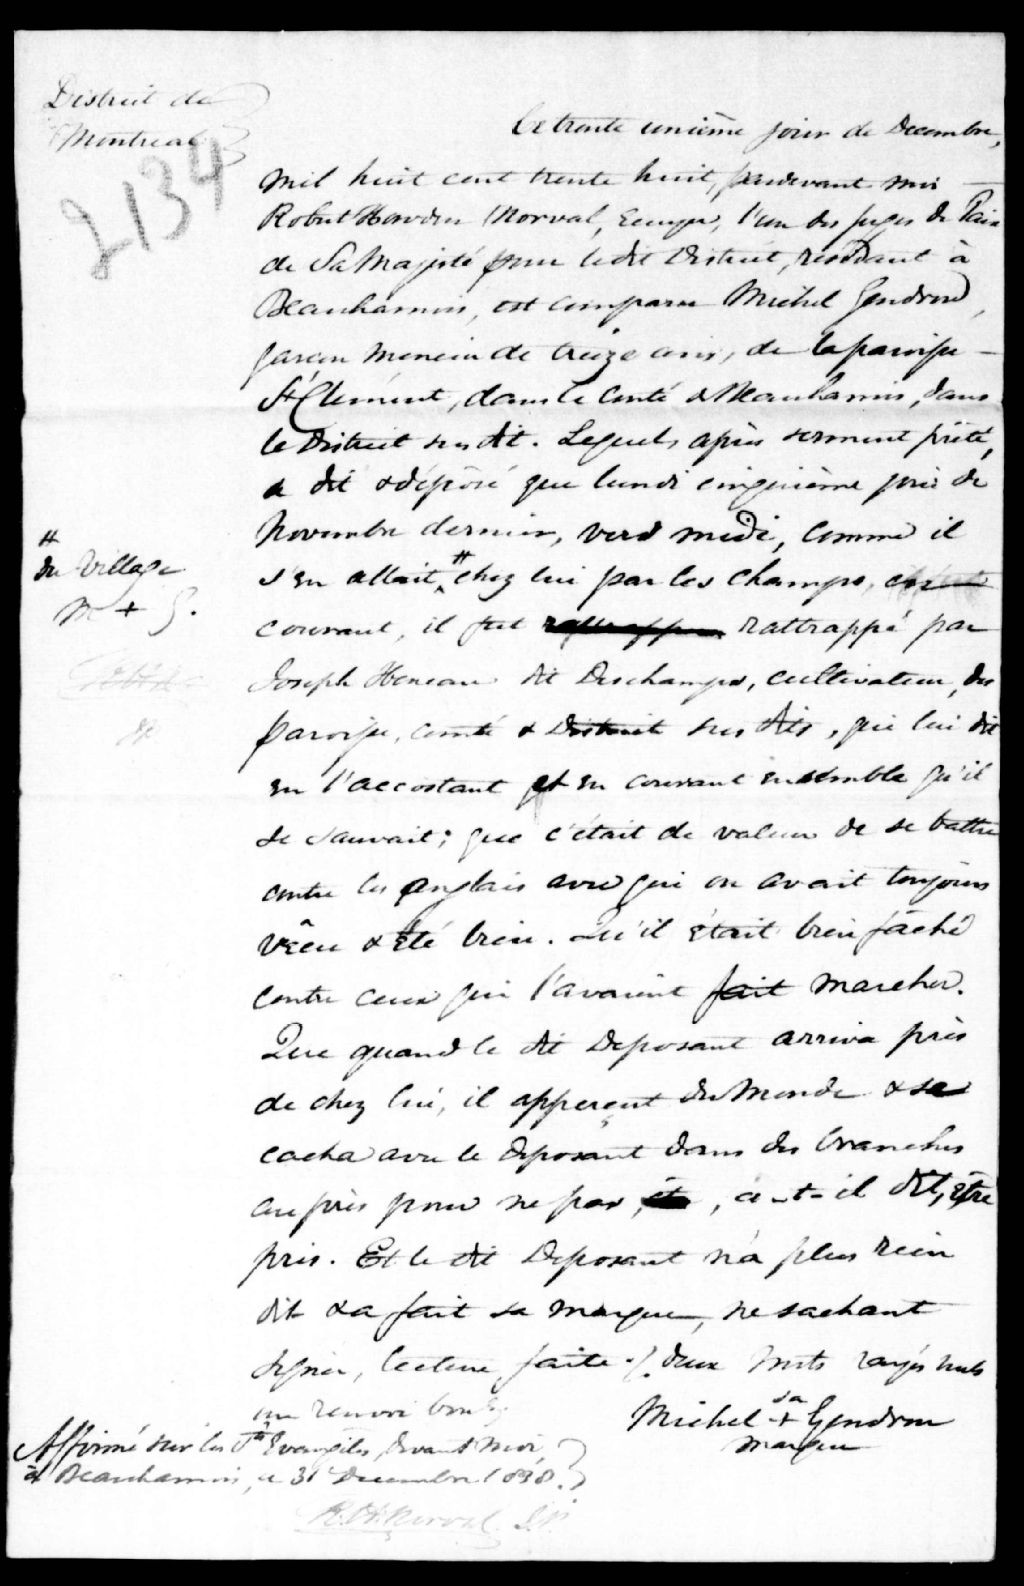 District de
Montreal
2134
Le trente unième jour de Decembre,
mil huit cent trente huit, pardevant moi
Robert Howden Norval, Ecuyer, l'un des juges de Paix
de Sa Majesté pour le dit District, résidant à
Beauharnois, est comparu Michel Gendron,
garçon mineur de treize ans, de la paroisse
St Clément, dans le Comté de Beauharnois, dans
le District susdit. Lequel, après serment prêté,
a dit & déposé que lundi cinquième jour de
Novembre dernier, vers midi, comme il
s'en allait # chez lui par les champs, en
# du Village
M + G.
courant, il fut rattrappé par
Joseph Heneau dit Deschamps, cultivateur, des
paroisse, comté & District sus dits, qui lui dit
en l'accostant et en courant ensemble qu'il
se sauvait; que c'était de valeur de se battre
contre les anglais avec qui on avait toujours
vêcu & été bien. Qu'il était bien fâché
contre ceux qui l'avaient fait marcher.
Que quand le dit Deposant arriva près
de chez lui, il apperçut du Monde & se
cacha avec le deposant dans des branches
auprès pour ne pas, a-t-il dit, être
pris. Et le dit Deposant n'a plus rien
dit & a fait sa marque, ne sachant
signer, lecture faite. deux mots rayés nuls
un renvoi bon
Michel sa + Gendron
marque
Affirmé sur les Sts Evangiles, devant moi,
à Beauharnois, ce 31 Decembre 1838.
R. H. Norval J.P.